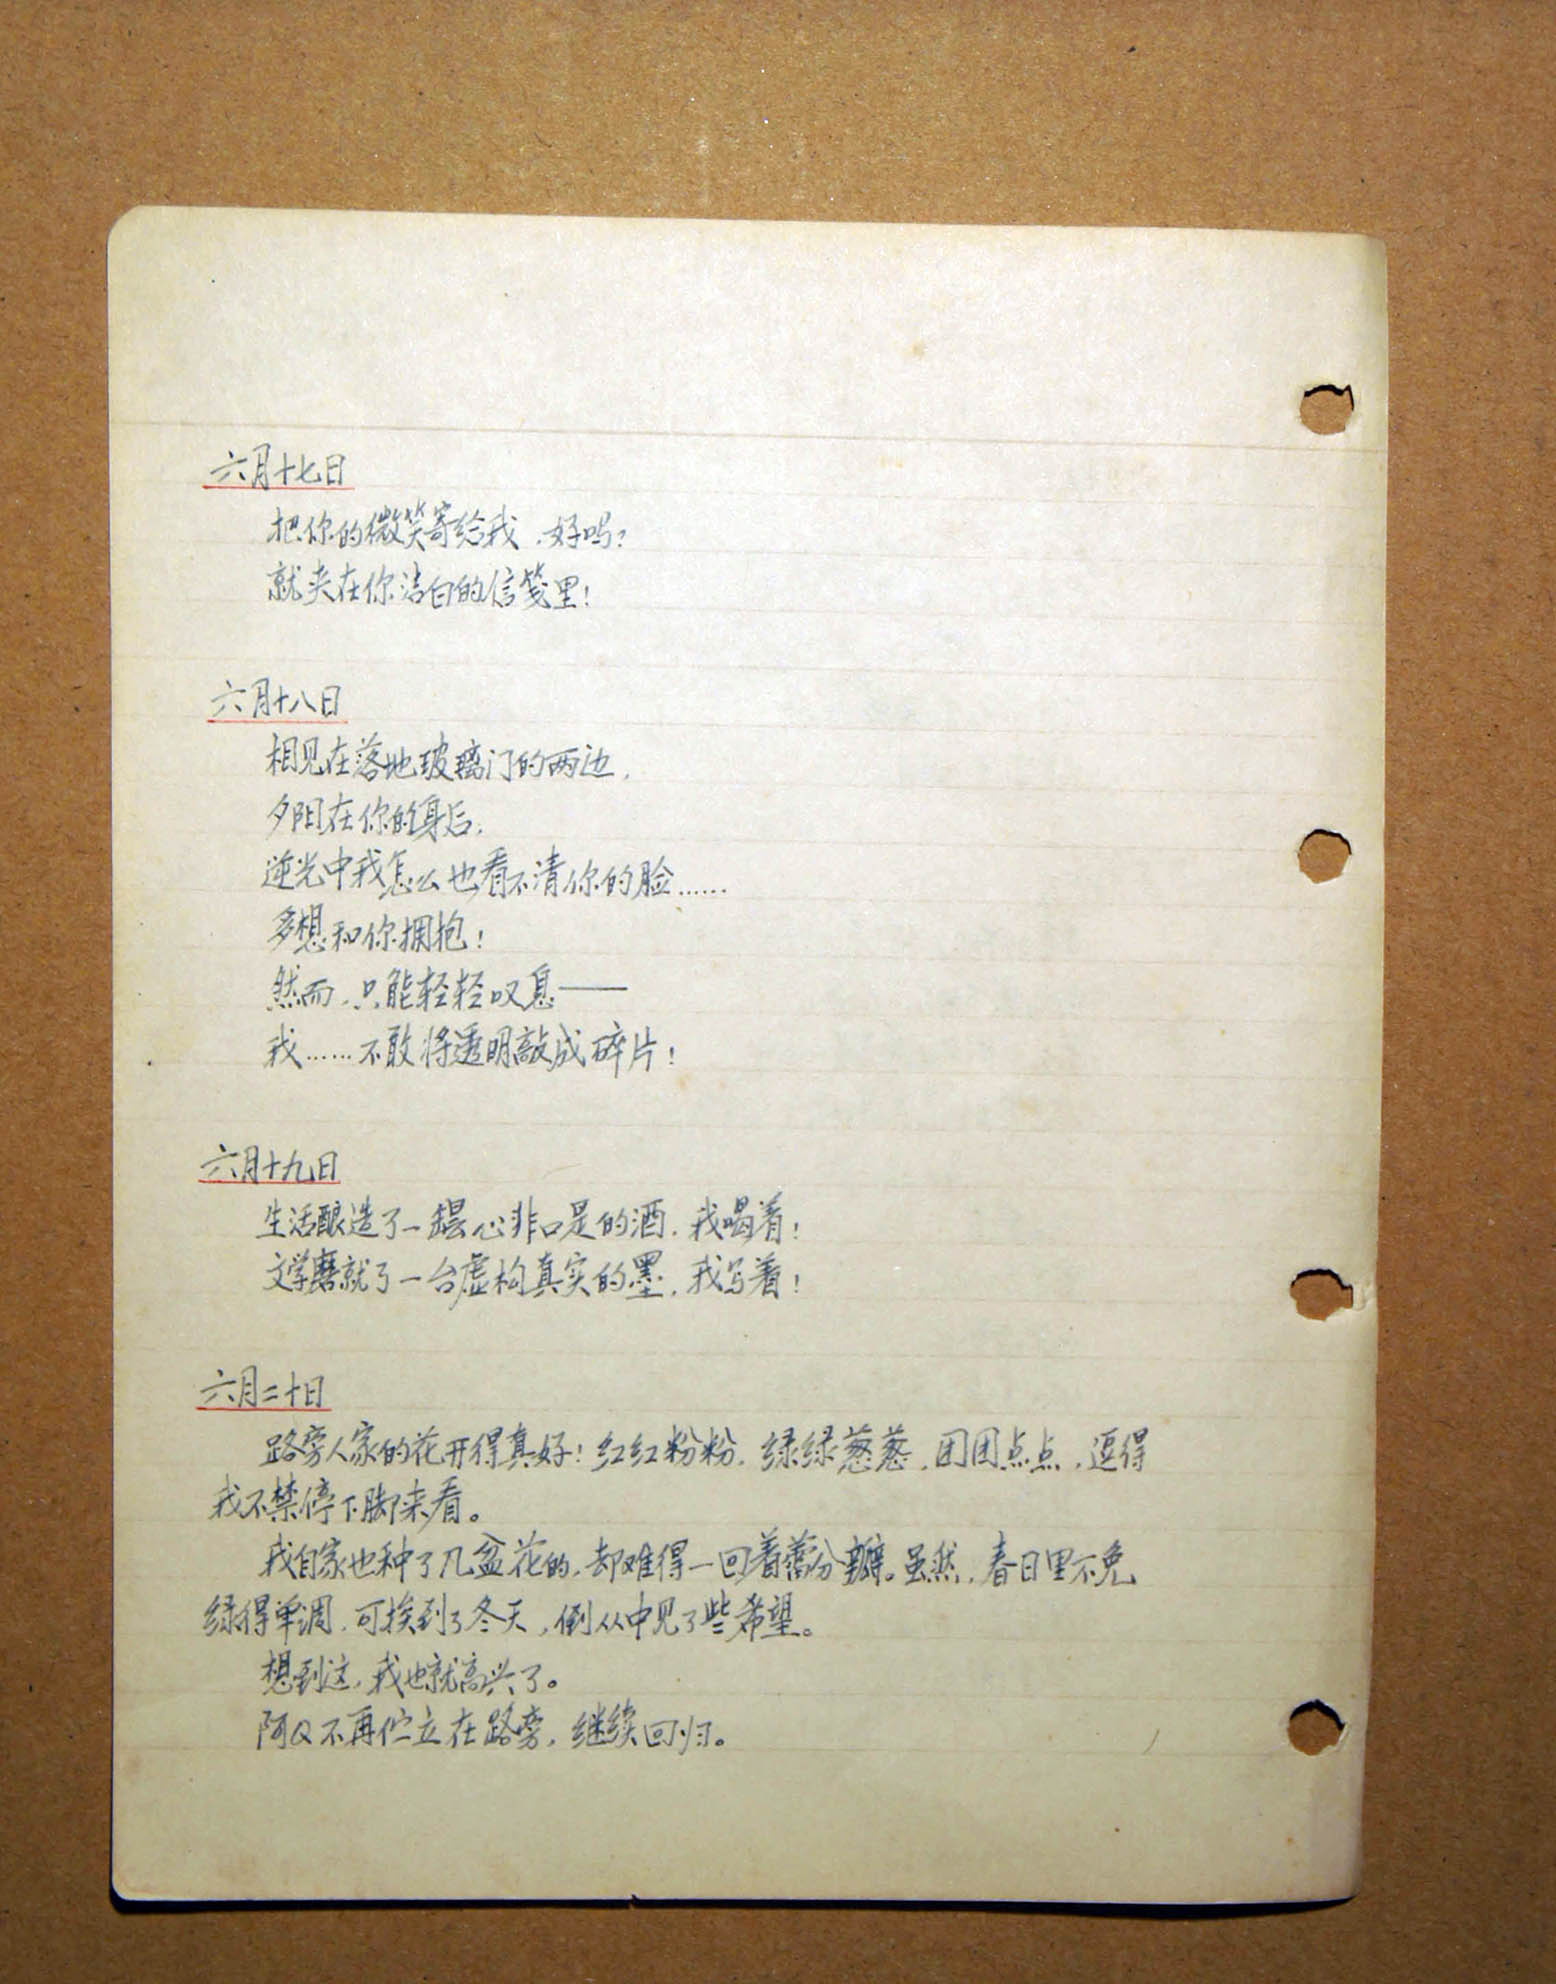 六月十七日
把你的微笑寄给我，好吗？
就夹在你洁白的信笺里！
六月十八日
相见在落地玻璃门的两边，
夕阳在你的身后，
逆光中我怎么也看不清你的脸……
多想和你拥抱！
然而，只能轻轻叹息——
我……不敢将透明敲成碎片！
六月十九日
生活酿造了一罎心非口是的酒，我喝着！
文学磨就了一台虚构真实的墨，我写着！
六月二十日
路旁人家的花开得真好！红红粉粉，绿绿葱葱，团团点点，逗得
我不禁停下脚来看。
我自家也种了几盆花的，却难得一回着蕾分瓣。虽然，春日里不免
绿得单调，可挨到了冬天，倒从中见了些希望。
想到这，我也就高兴了。
阿Q不再伫立在路旁，继续回归。